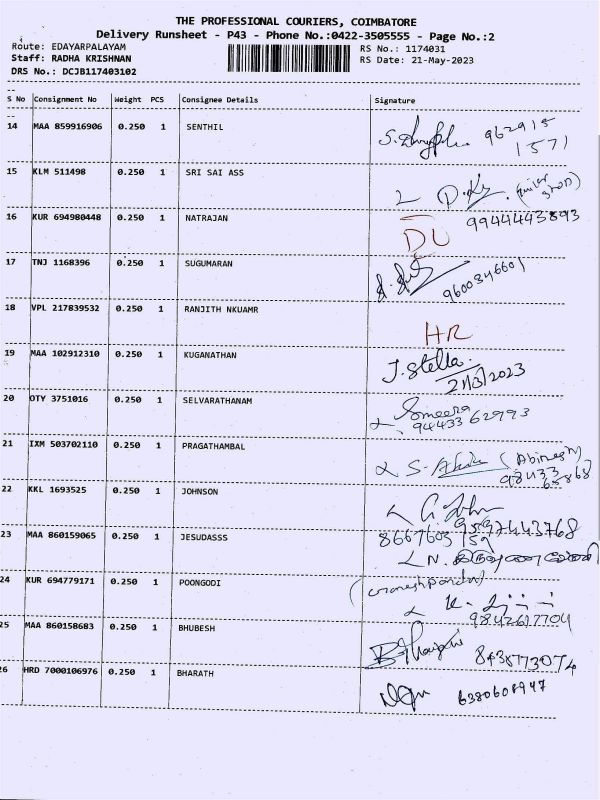 THE PROFESSIONAL COURIERS, COIMBATORE
Delivery Runsheet - P43 - Phone No.:0422-3505555 - Page No.:2
Route: EDAYARPALAYAM
RS No.: 1174031
Staff: RADHA KRISHNAN
RS Date: 21-May-2023
DRS No.: DCJB117403102
S No Consignment No Weight PCS Consignee Details Signature
14 MAA 859916906 0.250 1 SENTHIL 962915
1571
15 KLM 511498 0.250 1 SRI SAI ASS
16 KUR 694980448 0.250 1 NATRAJAN 9944443893
DU
17 TNJ 1168396 0.250 1 SUGUMARAN 9600346601
18 VPL 217839532 0.250 1 RANJITH NKUAMR
HR
19 MAA 102912310 0.250 1 KUGANATHAN J. Stella
21/3/2023
20 OTY 3751016 0.250 1 SELVARATHANAM Sameera
9443362993
21 IXM 503702110 0.250 1 PRAGATHAMBAL (Abinesh)
98433
68868
22 KKL 1693525 0.250 1 JOHNSON G. John
9597443768
23 MAA 860159065 0.250 1 JESUDASSS 8667603159
24 KUR 694779171 0.250 1 POONGODI
9842617704
25 MAA 860158683 0.250 1 BHUBESH 8438773074
26 HRD 7000106976 0.250 1 BHARATH 6380608947